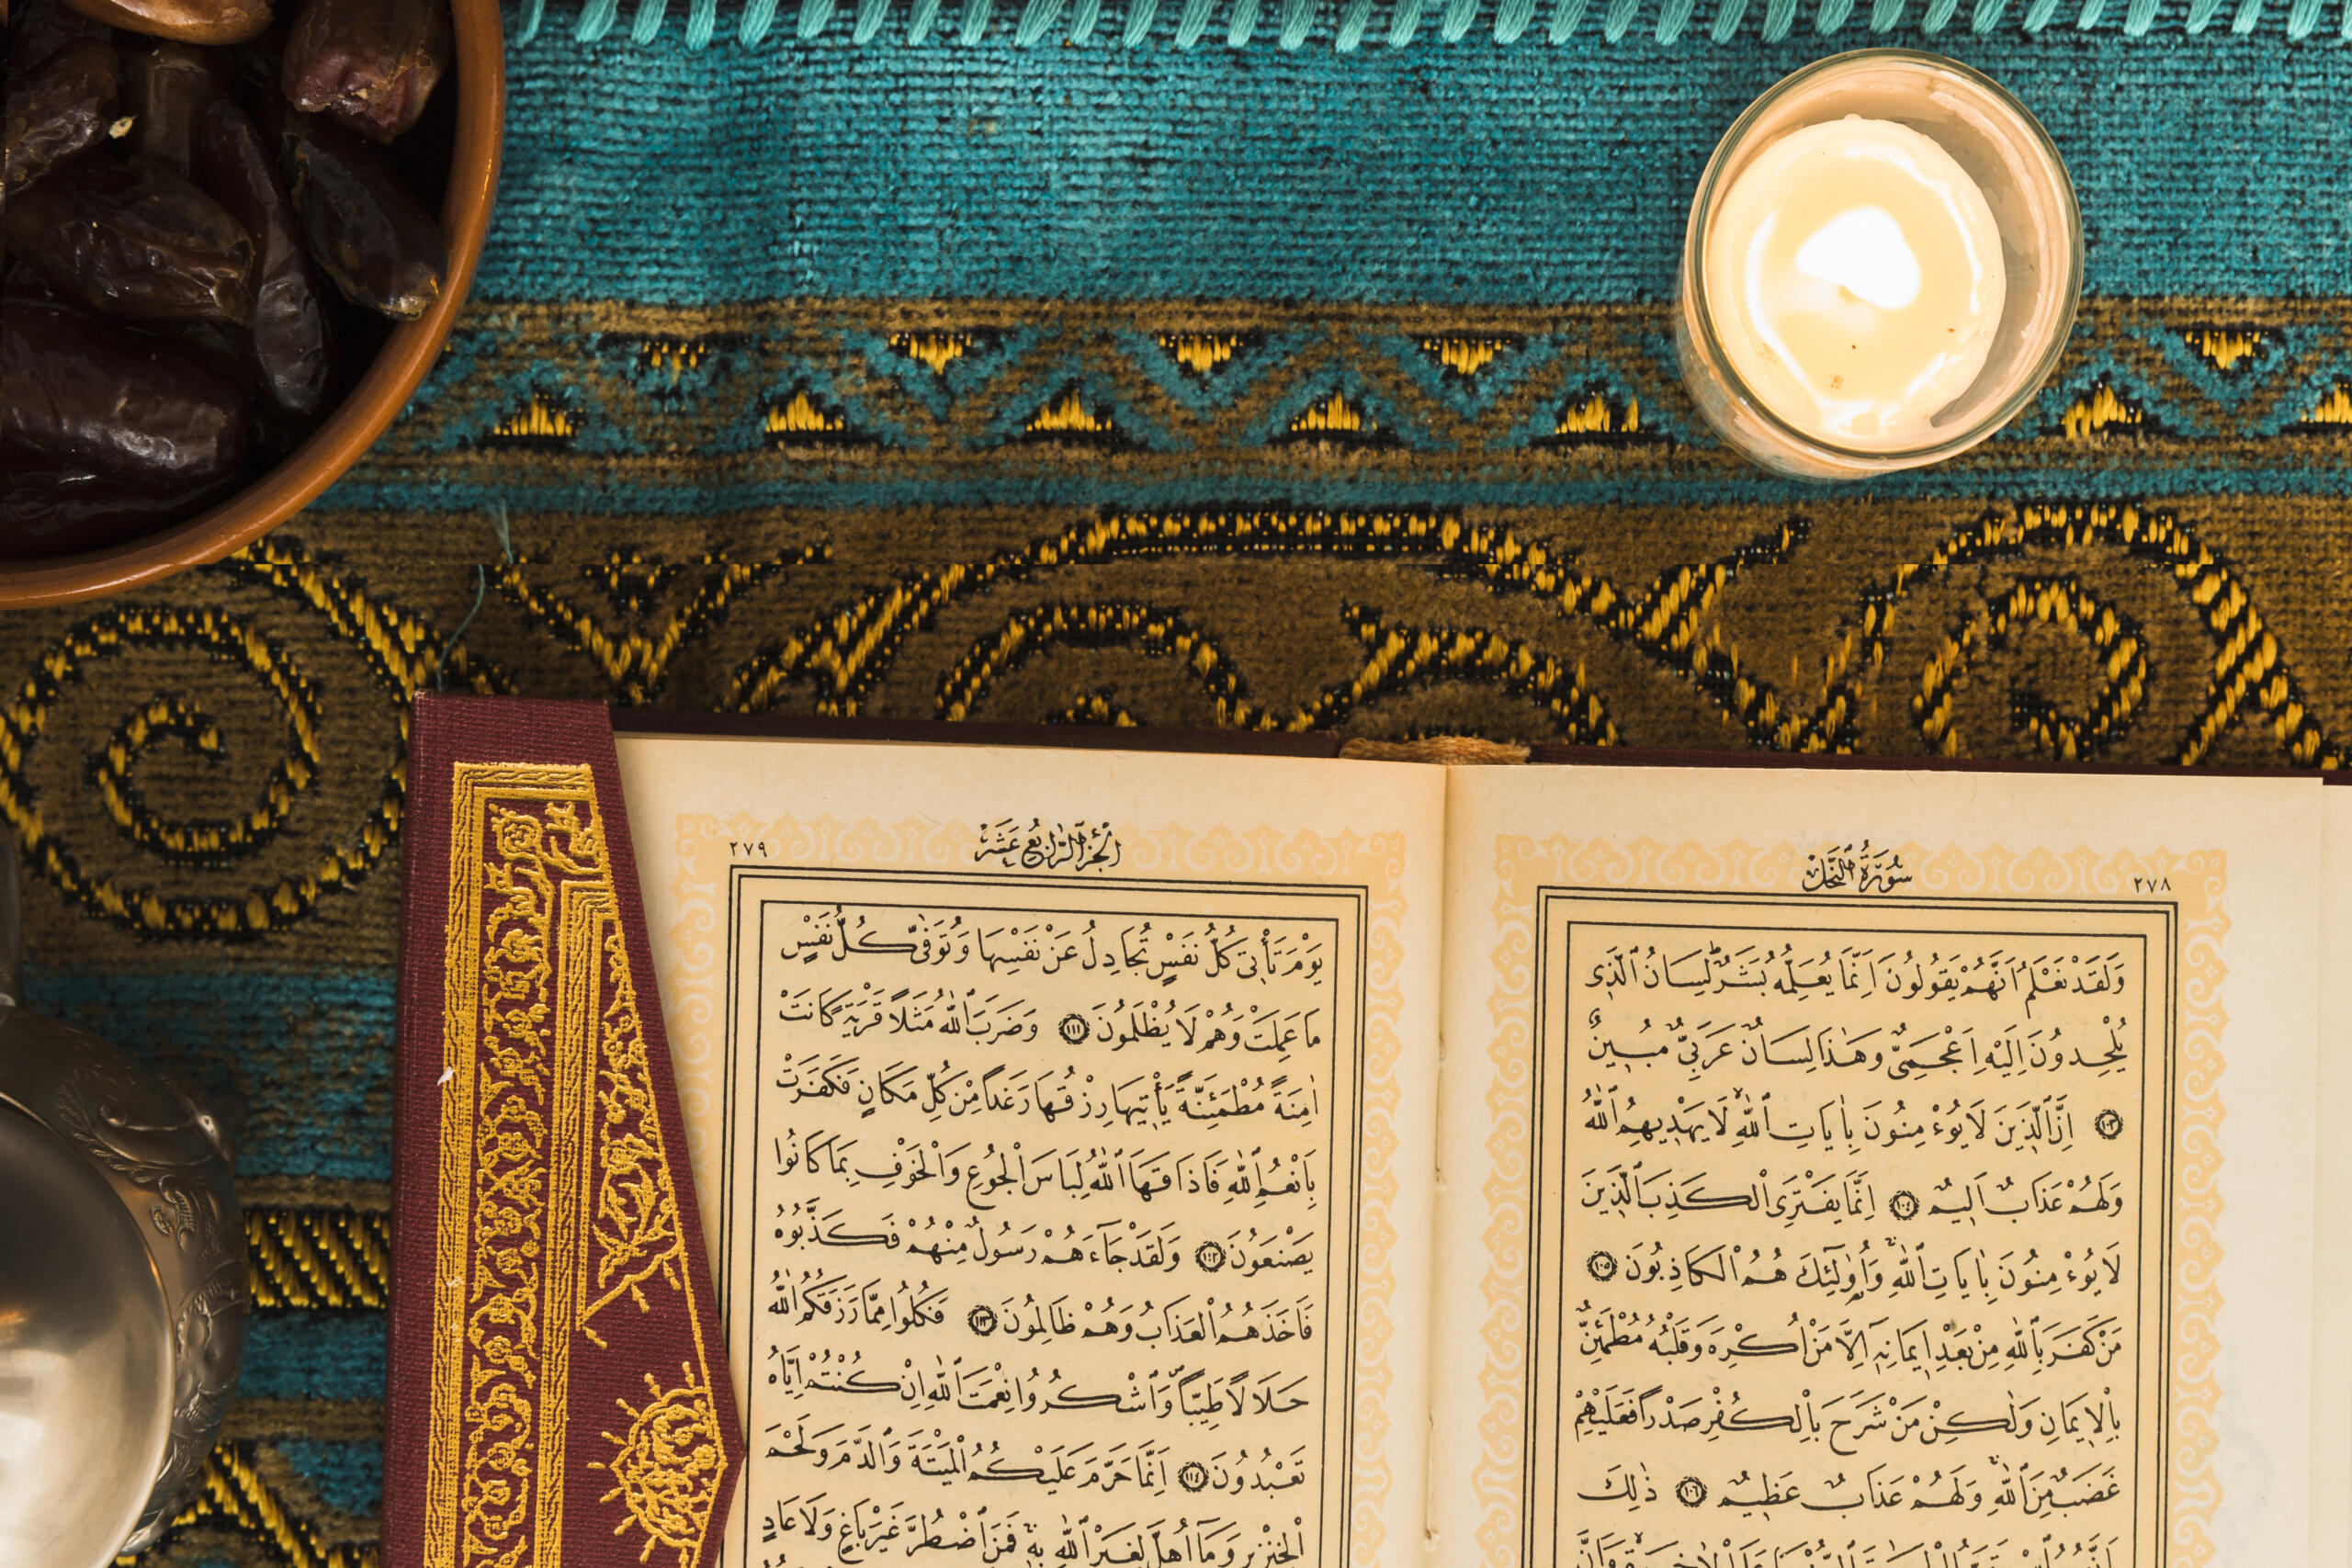 سُورَةُ ٱلنَّحْلِ
٢٧٨
وَلَقَدْ نَعْلَمُ اَنَّهُمْ يَقُولُونَ اِنَّمَا يُعَلِّمُهُ بَشَرٌ لِسَانُ ٱلَّذِى
يُلْحِدُونَ اِلَيْهِ اَعْجَمِىٌّ وَهٰذَا لِسَانٌ عَرَبِىٌّ مُبِينٌ
﴿١٠٣﴾ اِنَّ ٱلَّذِينَ لَا يُوءْمِنُونَ بِاٰيَاتِ ٱللّٰهِ لَا يَهْدِيهِمُ ٱللّٰهُ
وَلَهُمْ عَذَابٌ اَلِيمٌ ﴿١٠٤﴾ اِنَّمَا يَفْتَرِى ٱلْكَذِبَ ٱلَّذِينَ
لَا يُوءْمِنُونَ بِاٰيَاتِ ٱللّٰهِ وَاُولٰٓئِكَ هُمُ ٱلْكَاذِبُونَ ﴿١٠٥﴾
مَنْ كَفَرَ بِٱللّٰهِ مِنْ بَعْدِ اِيمَانِهِٓ اِلَّا مَنْ اُكْرِهَ وَقَلْبُهُ مُطْمَئِنٌّ
بِٱلْاِيمَانِ وَلٰكِنْ مَنْ شَرَحَ بِٱلْكُفْرِ صَدْرًا فَعَلَيْهِمْ
غَضَبٌ مِنَ ٱللّٰهِ وَلَهُمْ عَذَابٌ عَظِيمٌ ﴿١٠٦﴾ ذٰلِكَ
ٱلْجُزْءُ ٱلرَّابِعُ عَشَرَ
٢٧٩
يَوْمَ تَأْتِى كُلُّ نَفْسٍ تُجَادِلُ عَنْ نَفْسِهَا وَتُوَفّٰى كُلُّ نَفْسٍ
مَا عَمِلَتْ وَهُمْ لَا يُظْلَمُونَ ﴿١١١﴾ وَضَرَبَ ٱللّٰهُ مَثَلًا قَرْيَةً كَانَتْ
اٰمِنَةً مُطْمَئِنَّةً يَأْتِيهَا رِزْقُهَا رَغَدًا مِنْ كُلِّ مَكَانٍ فَكَفَرَتْ
بِاَنْعُمِ ٱللّٰهِ فَاَذَاقَهَا ٱللّٰهُ لِبَاسَ ٱلْجُوعِ وَٱلْخَوْفِ بِمَا كَانُوا
يَصْنَعُونَ ﴿١١٢﴾ وَلَقَدْ جَآءَهُمْ رَسُولٌ مِنْهُمْ فَكَذَّبُوهُ
فَاَخَذَهُمُ ٱلْعَذَابُ وَهُمْ ظَالِمُونَ ﴿١١٣﴾ فَكُلُوا مِمَّا رَزَقَكُمُ ٱللّٰهُ
حَلَالًا طَيِّبًا وَٱشْكُرُوا نِعْمَتَ ٱللّٰهِ اِنْ كُنْتُمْ اِيَّاهُ
تَعْبُدُونَ ﴿١١٤﴾ اِنَّمَا حَرَّمَ عَلَيْكُمُ ٱلْمَيْتَةَ وَٱلدَّمَ وَلَحْمَ
ٱلْخِنْزِيرِ وَمَآ اُهِلَّ لِغَيْرِ ٱللّٰهِ بِهِ فَمَنِ ٱضْطُرَّ غَيْرَ بَاغٍ وَلَا عَادٍ